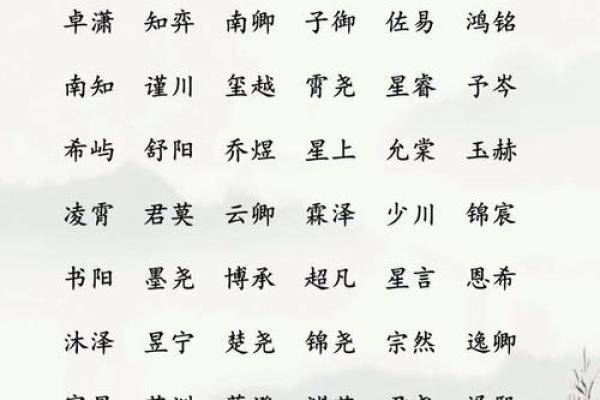 卓潇 知弈 南卿 子御 佐易 鸿铭
南知 谨川 玺越 霄尧 星睿 予岑
希屿 舒阳 乔煜 星上 允棠 玉赫
凌霄 君莫 云卿 霖泽 少川 锦宸
书阳 墨尧 博承 超凡 星言 恩希
沐泽 昱宁 楚尧 锦尧 宗然 逸卿